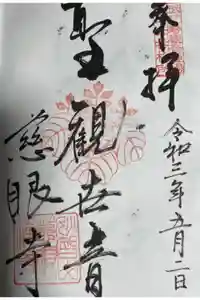 奉拝
令和三年五月二日
聖観世音
慈眼寺